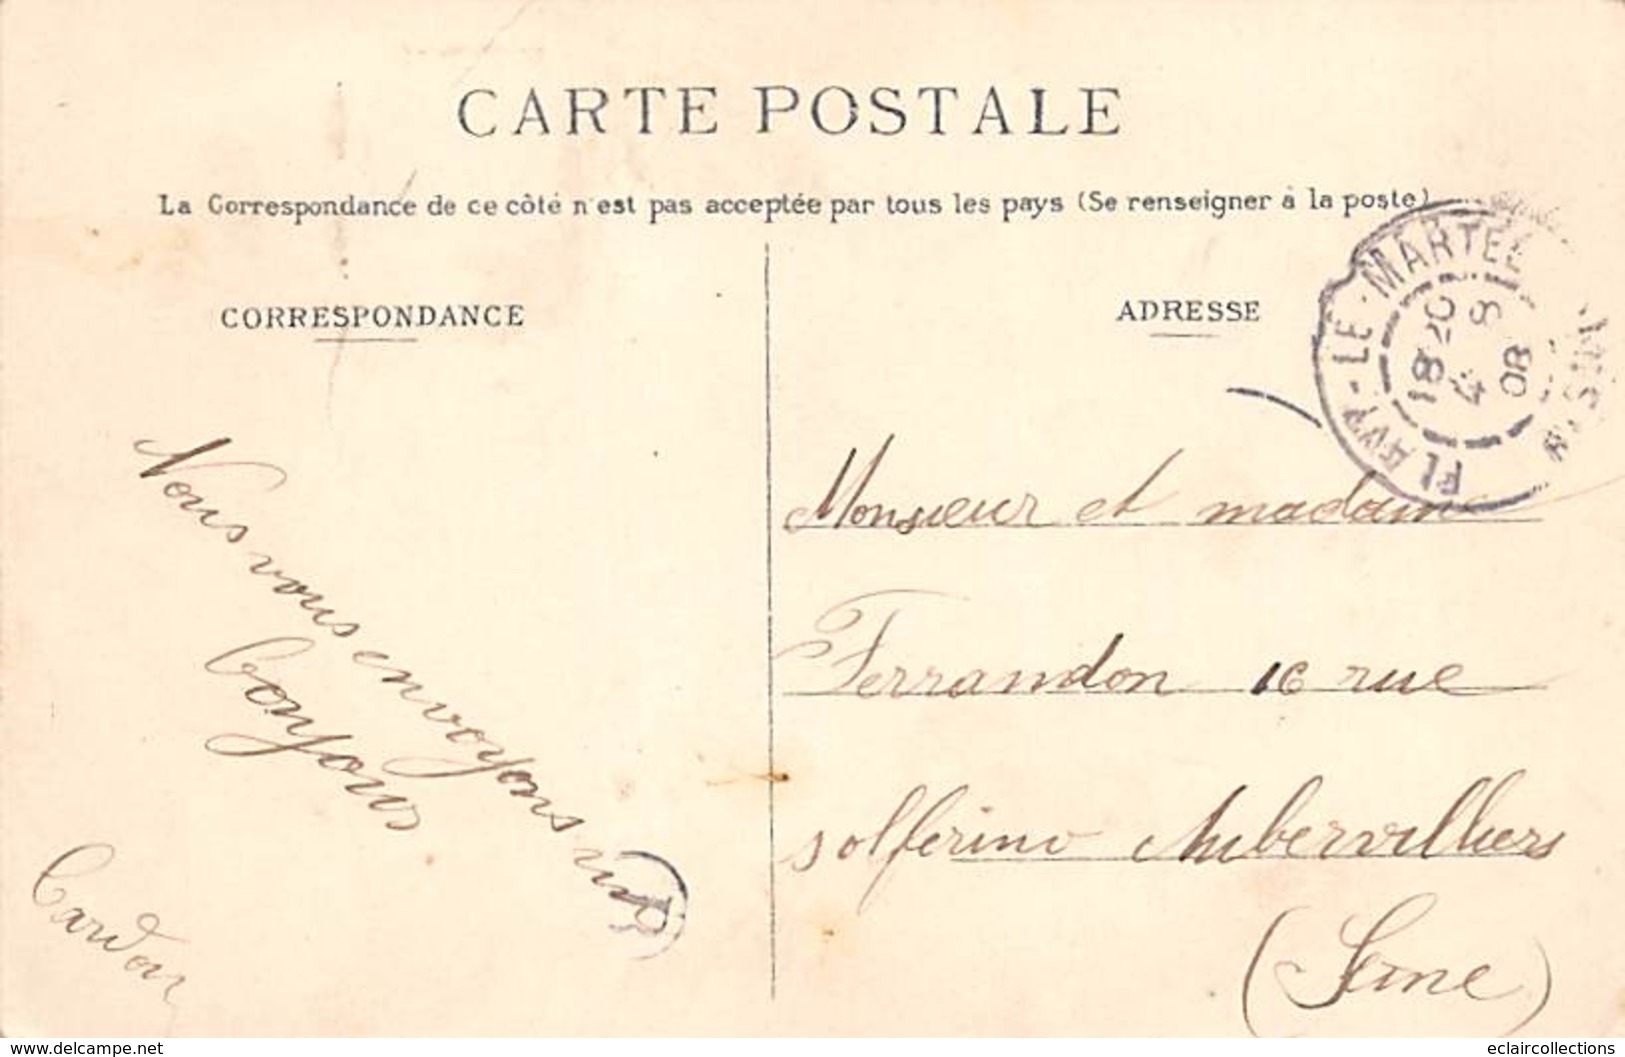 CARTE POSTALE
La Correspondance de ce côté n'est pas acceptée par tous les pays (Se renseigner à la poste)
CORRESPONDANCE
Nous vous envoyons un
bonjour
Cardon
ADRESSE
FLAVY-LE-MARTEL
AISNE
18 20
8 4
08
Monsieur et madame
Ferrandon 16 rue
solferino Aubervilliers
(Seine)
www.delcampe.net
eclaircollections